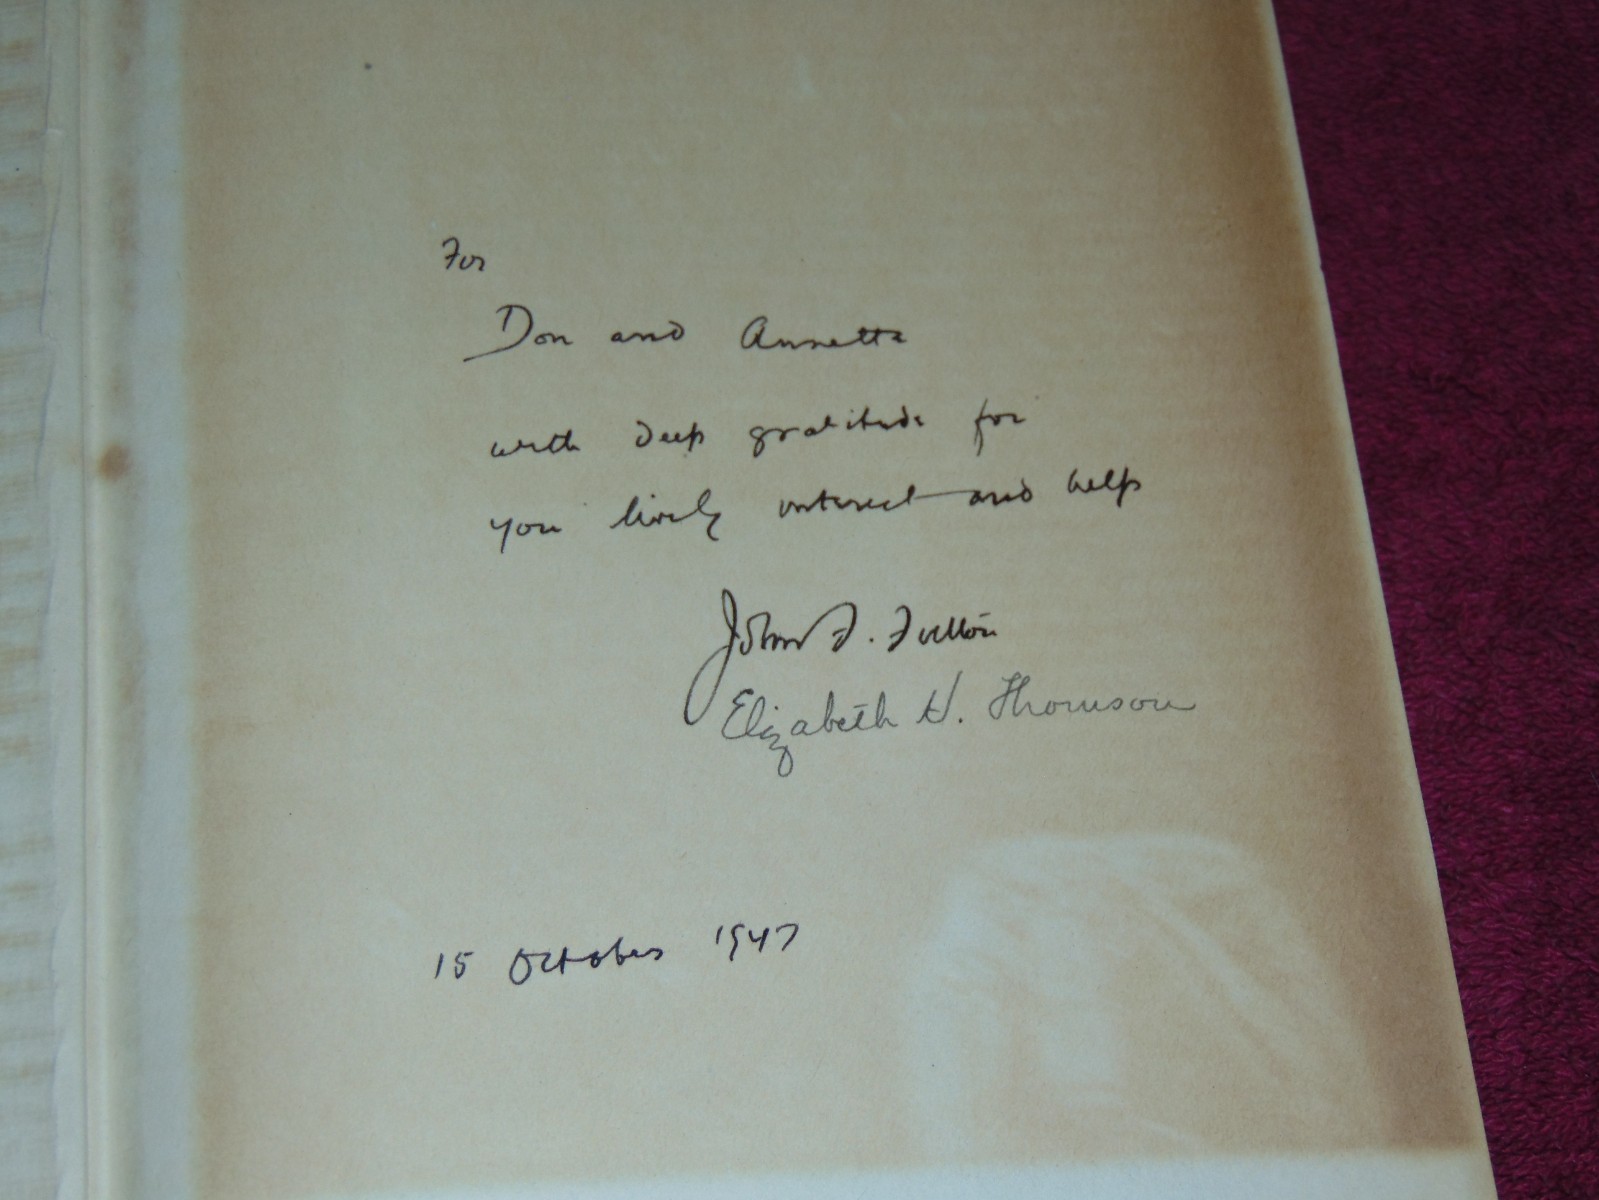 For
Don and Annette
with deep gratitude for
you lively interest and help
John F. Fulton
Elizabeth H. Thomson
15 October 1947